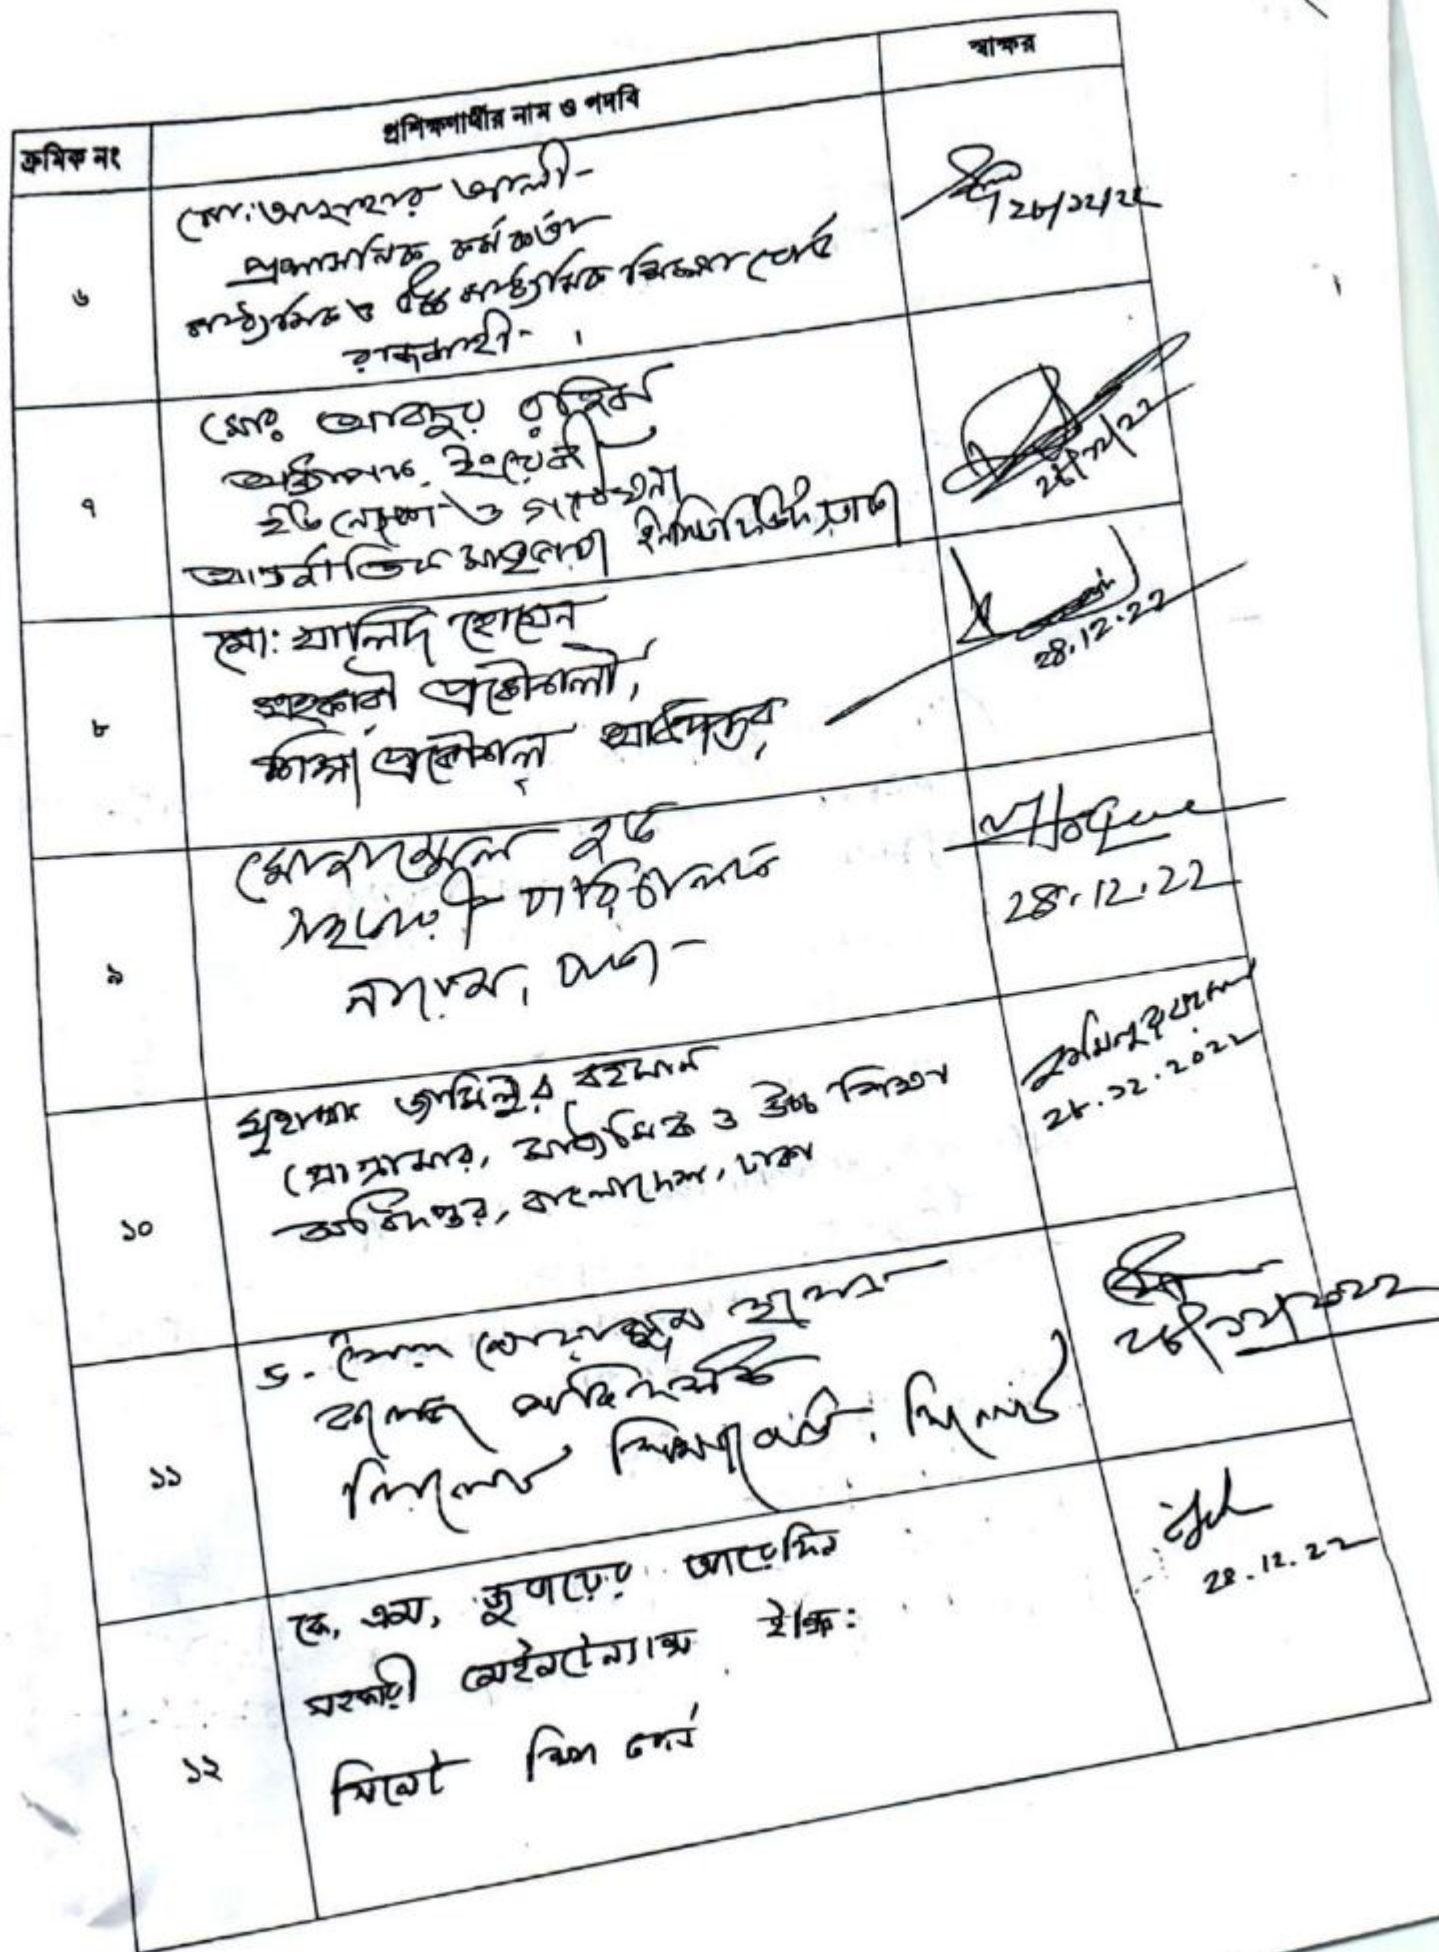 ক্রমিক নং প্রশিক্ষণার্থীর নাম ও পদবি স্বাক্ষর
৬
মো: আজাহার আলী
প্রশাসনিক কর্মকর্তা
মাধ্যমিক ও উচ্চ মাধ্যমিক শিক্ষা বোর্ড
রাজশাহী।
২৮/১২/২২
৭
মোঃ আবদুর রহিম
অধ্যাপক, ইংরেজী
ও গবেষণা
আন্তর্জাতিক মাতৃভাষা ইনস্টিটিউট, ঢাকা
২৮/১২/২২
৮
মো: খালিদ হোসেন
সহকারী প্রকৌশলী,
শিক্ষা প্রকৌশল অধিদপ্তর,
28.12.22
৯
মোজাম্মেল হক
সহকারী পরিচালক
নায়েম, ঢাকা
MHoque
28.12.22
১০
মুহাম্মদ জামিলুর রহমান
প্রোগ্রামার, মাধ্যমিক ও উচ্চ শিক্ষা
অধিদপ্তর, বাংলাদেশ, ঢাকা
জামিলুর রহমান
২৮.১২.২০২২
১১
ড.
কলেজ
সিলেট শিক্ষা বোর্ড, সিলেট
২৮/১২/২০২২
১২
কে, এম, জুবায়ের আরেফিন
সহকারী মেইনটেন্যান্স ইঞ্জি:
সিলেট শিক্ষা বোর্ড
28.12.22